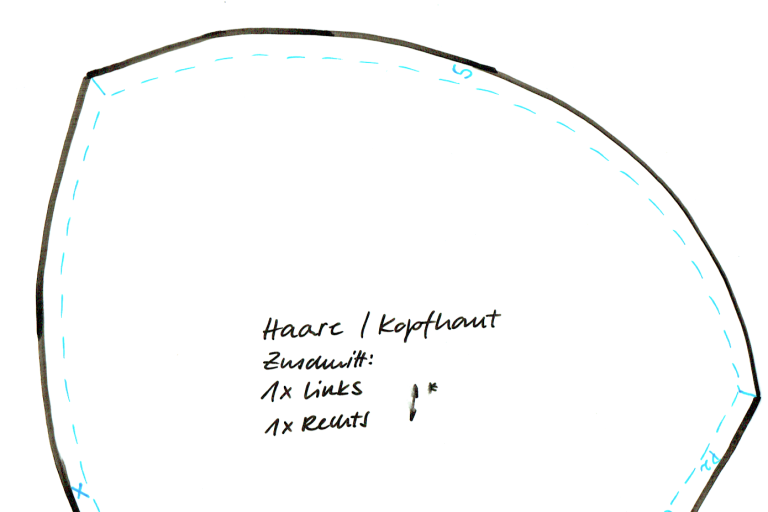 S
Haare / Kopfhaut
Zuschnitt:
1x Links
1x Rechts
*
X